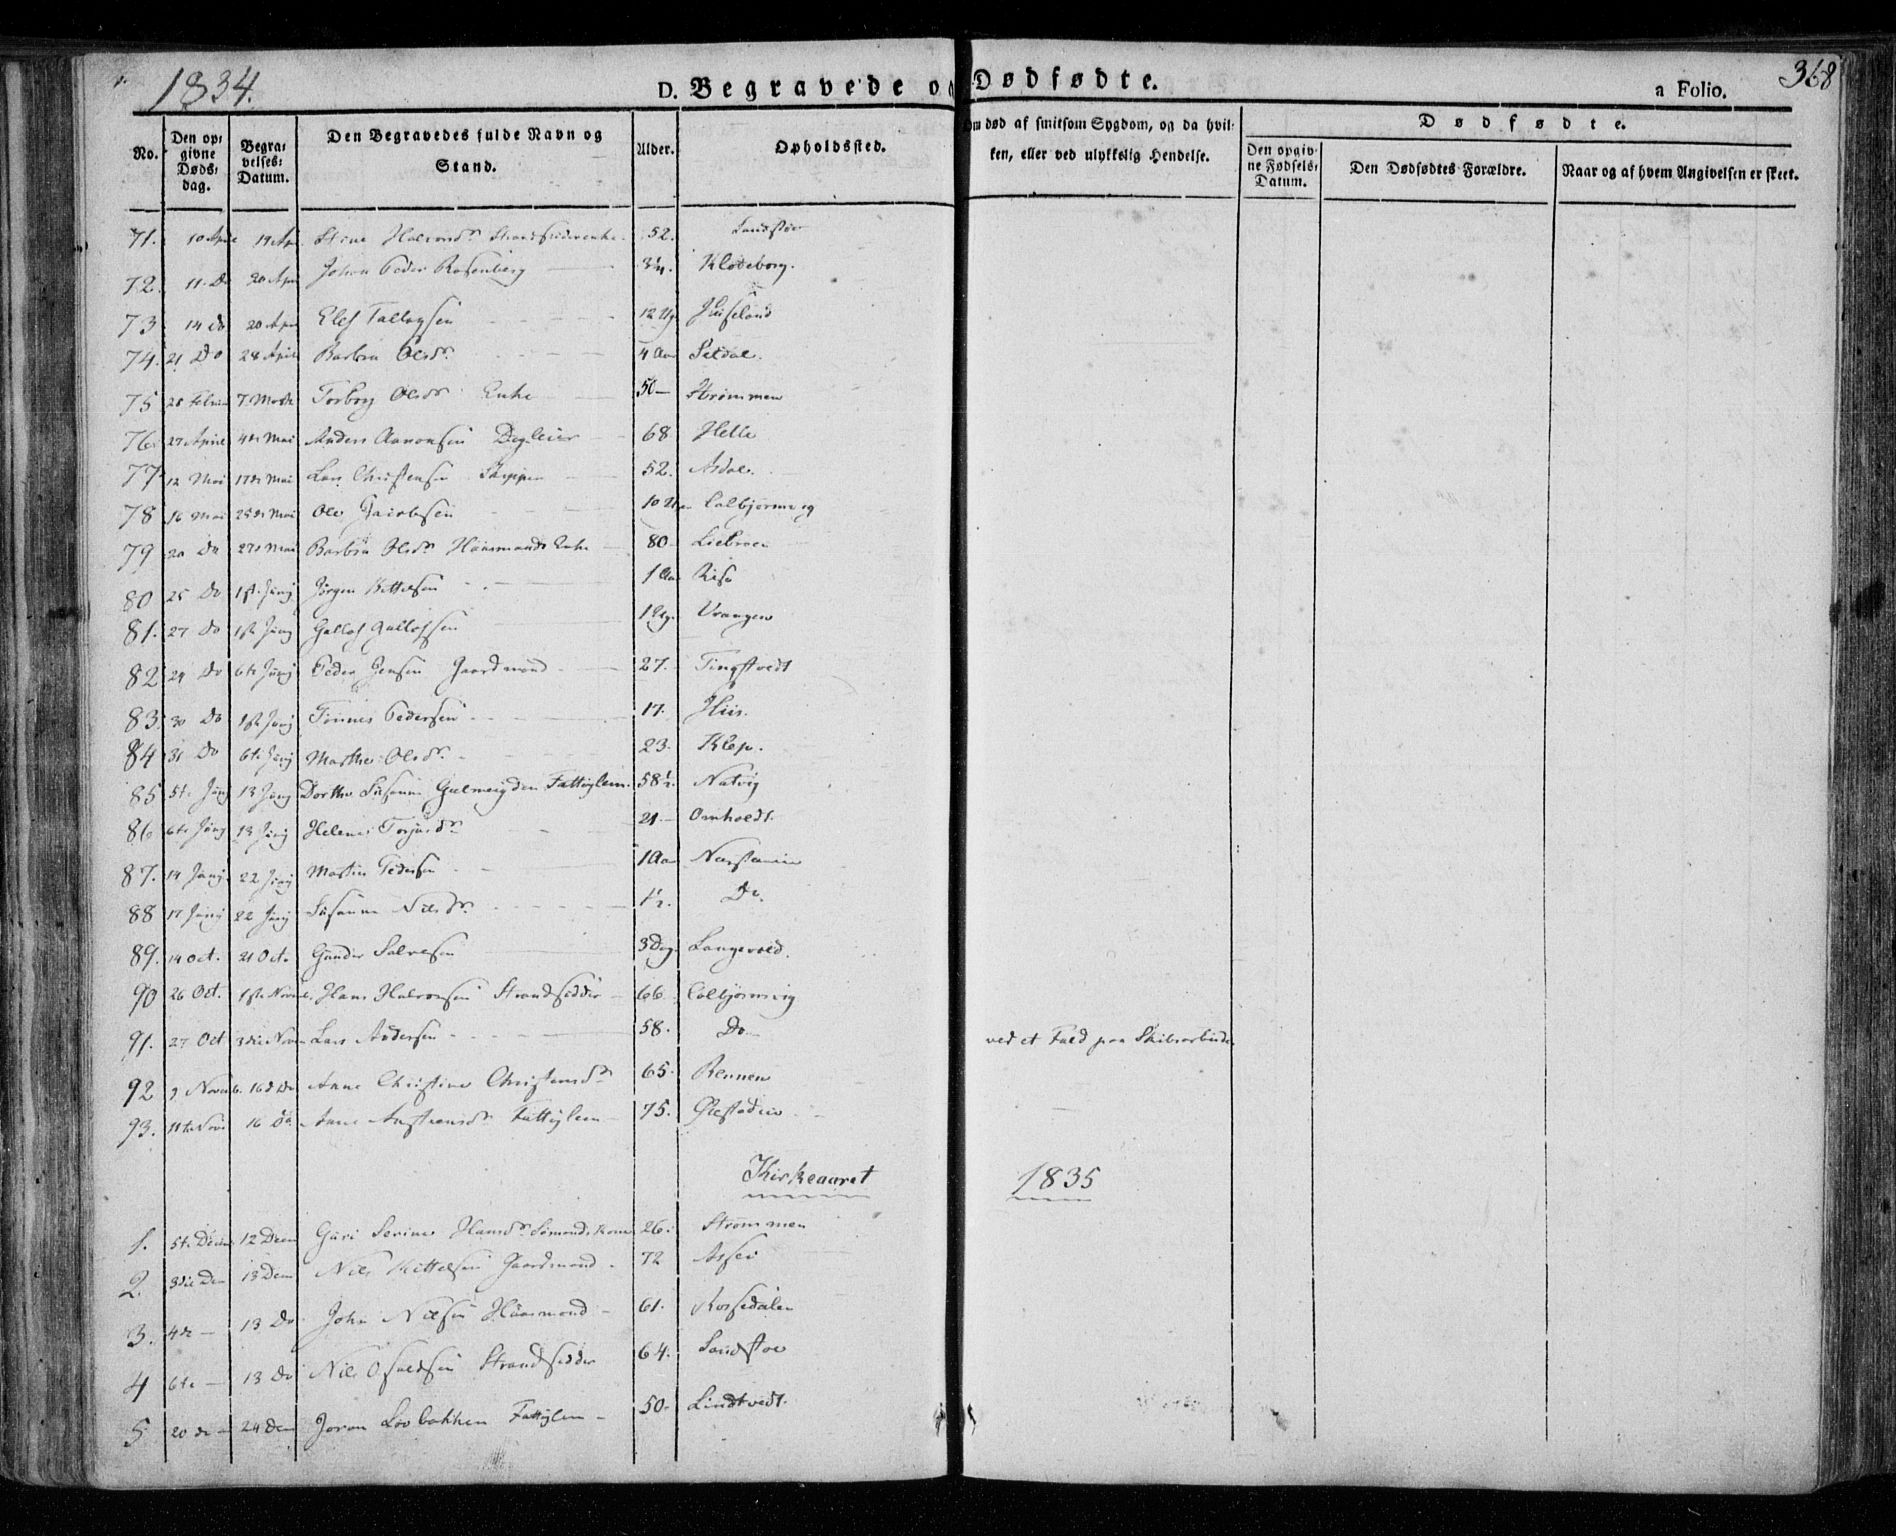 1834. D. Begravede og Dødfødte. a Folio. 368
No. Den opgivne Dødsdag. Begravelses-Datum. Den Begravedes fulde Navn og Stand. Alder. Opholdssted. Om død af smitsom Sygdom, og da hvilken, eller ved ulykkelig Hendelse. Dødfødte. Den opgivne Fødsels-Datum. Den Dødfødtes Forældre. Naar og af hvem Angivelsen er skeet.
71. 10 April 19 Apr Stine Halvorsdr 52. Sandstøe
72. 11 Do 20 Apr Johan Peder Rosenberg 3/4. Klodeborg.
73 14 do 20 Apr Elef Tallagsen 12 Ug Huseland
74. 21 Do 28 April Barbra Olsdr 4 Aar Seldal.
75 28 Februar 7 Martz Torborg Olsdr Enke 50 Strømmen
76. 27 April 4de Mai Anders Aanonsen Dagleier 68 Helle
77 12 Mai 17de Mai Lars Christensen Skipper 52. Asdal.
78 16 Mai 25de Mai Ole Jacobsen 10 Colbjørnsvig
79 20 Do 27de Mai Barbra Olsdr Huusmands Enke 80 Liebroen
80 25 Do 1ste Junj Jørgen Kittelsen 1 Aar Risø
81. 27 do 1ste Junj Gullof Gullofsen 1 Ug. Vrangen
82 29 Do 6te Junj Peder Jensen Gaardmand 27. Tingstvedt
83. 30 Do 1ste Junj Tønnes Pedersen 17. Hiis.
84 31 Do 6te Junj Marthe Olsdr 23. Klep.
85 5te Junj 13 Junj Dorthe Susanne Galmeigden Fattiglem 58½. Natvig
86 6te Junj 13 Junj Helene Torjusdr 21 Omholdt.
87. 14 Junj 22 Junj Martin Pedersen 1 Aar Narstøe
88 17 Junj 22 Junj Susanne Nilsdr ½. Do.
89. 14 Oct. 21 Oct. Gunder Salvesen 3 Dag. Langevold.
90 26 Oct. 1ste Novmb. Hans Halvorsen Strandsidder 66 Colbjørnsvig
91. 27 Oct 3die Novm Lars Andersen 58. Do ved et Fald paa Skibsarbeide
92 9 Novemb. 16 d Do Anne Christine Christensdr 65. Rennen
93. 11te Novb 16 Do Anne Fattiglem 75. Øiestadeie
Kirkeaaret 1835
1. 5te Decem 12 Decm Guri Serine Hansdr Sømands Kone 26. Strømmen
2. 3die Dcm 13 Dcm Nils Kittelsen Gaardmand 72 Assev
3. 4de 13 Do John Nilsen Huusmand 61. Rossedalen
4 6te 13 Do Nils Osuldsen Strandsidder 64. Sandstøe
5 20 de 24 Dcm Joran Løvbakken Fattiglem 50. Lindtvedt.